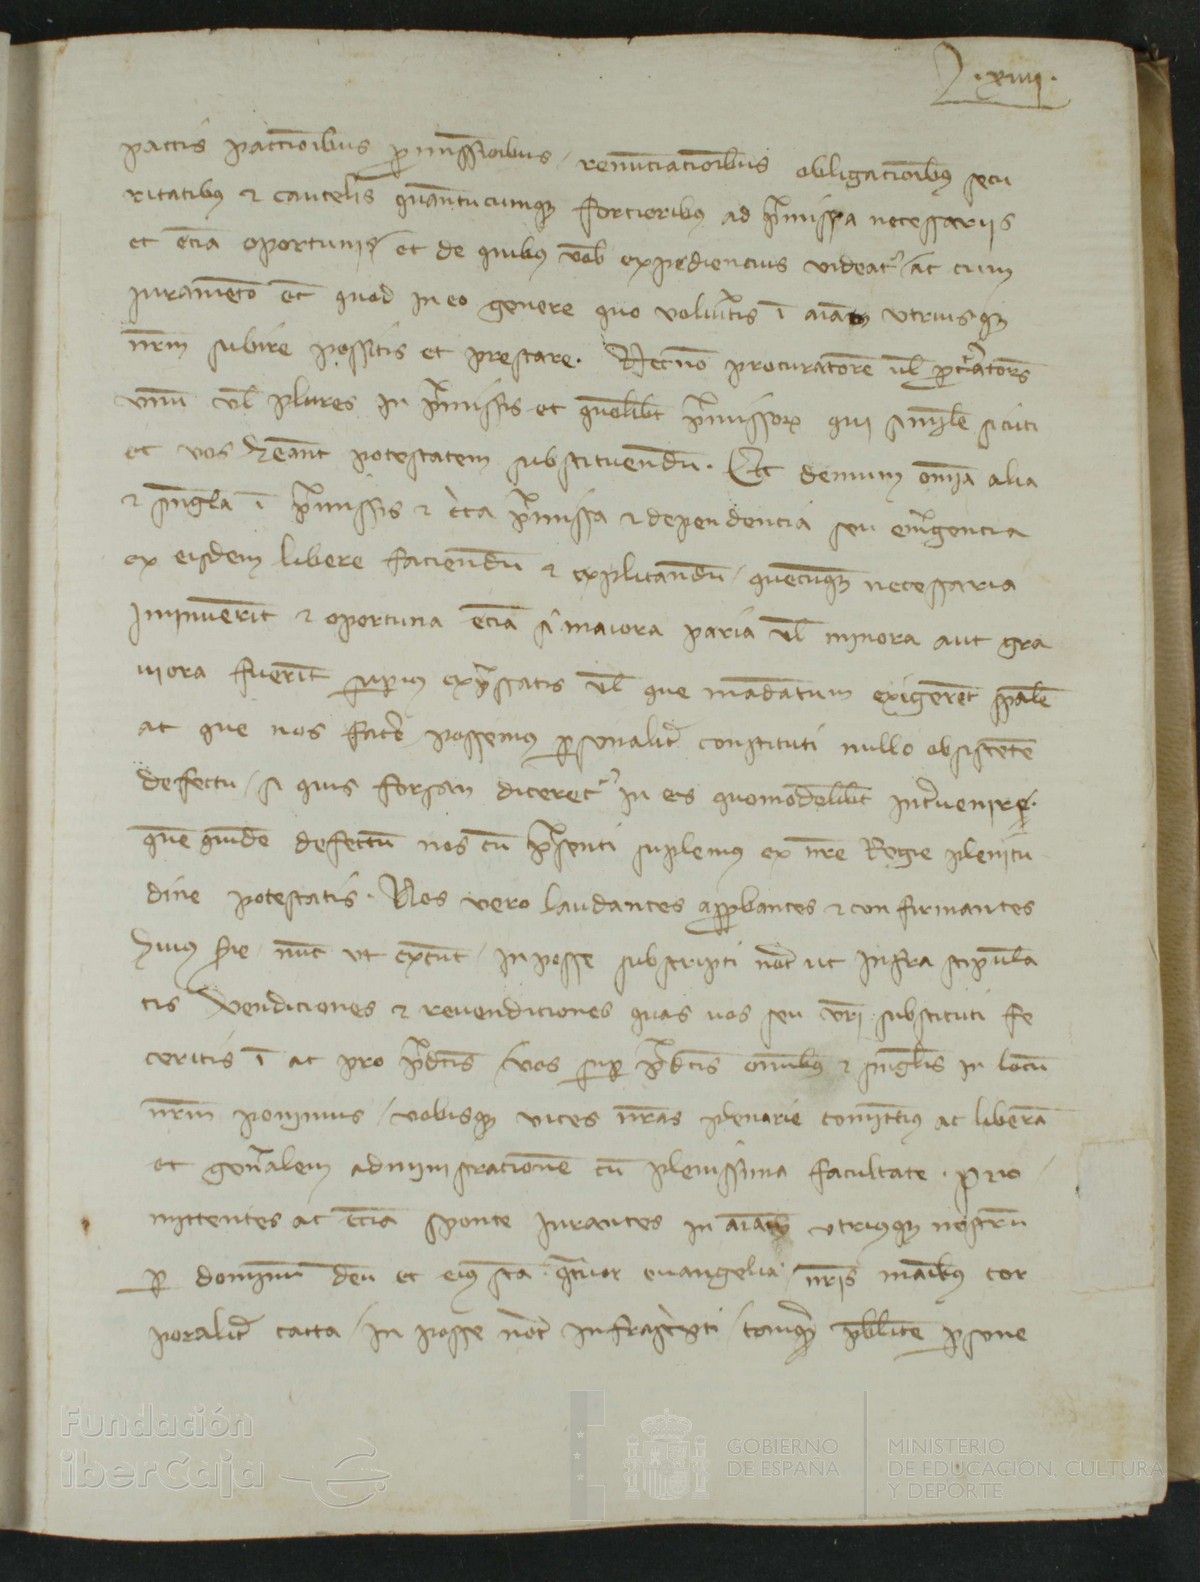 .xiiij.
pactis paccionibus promissionibus / renunciacionibus obligacionibus secu
ritatibus et cautelis quantucumque forcioribus ad premissa necessariis
et eciam oportunis et de quibus vobis expediencius videatur / ac cum
iuramento et quod in eo genere quo volueritis in animam utriusque
nostrum subire possitis et prestare. Necnon procuratorem vel procuratores
unum vel plures in premissis et quolibet premissorum qui similem sicuti
et vos habeant potestatem substituendum. Et demum omnia alia
et singula in premissis et circa premissa et dependencia seu emergencia
ex eisdem libere faciendum et explicandum / quecumque necessaria
inmuerint et oportuna eciam si maiora paria vel minora aut gra
viora fuerint superius expressatis vel que mandatum exigerent speciale
ac que nos facere possemus personaliter constituti nullo obsistente
defectu / si quis forsan diceretur in eis quomodolibet intervenire.
quem quidem defectum nos cum presenti suplemus ex nostre Regie plenitu
dine potestatis. Nos vero laudantes approbantes et confirmantes
huius serie nunc ut extunc / in posse subscripti notarii ut infra stipula
tis vendiciones et revendiciones quas vos seu vestri substituti fe
ceritis in ac pro predictis / vos super predictis omnibus et singulis in locum
nostrum ponimus / vobisque vices nostras plenarie comittimus ac liberam
et generalem administracionem cum plenissima facultate. pro
mittentes ac eciam sponte iurantes in animam utriusque nostrum
per dominum deum et eius sancta quatuor evangelia / nostris manibus cor
poraliter tacta / in posse notarii infrascripti / tanquam publice persone
Fundación
iberCaja
GOBIERNO
DE ESPAÑA
MINISTERIO
DE EDUCACIÓN, CULTURA
Y DEPORTE